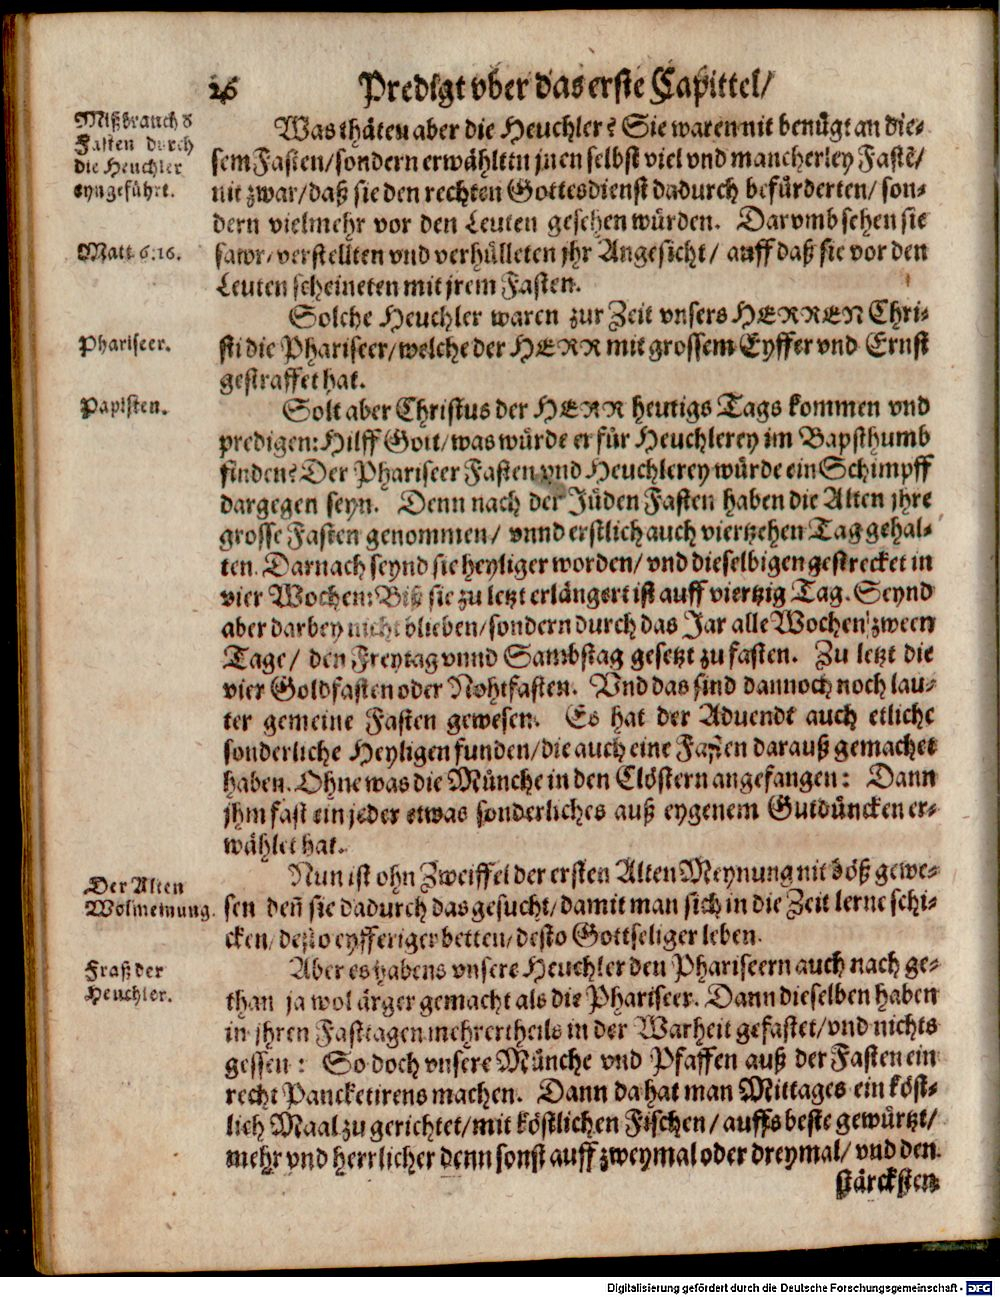 26 Predigt vber das erste Capittel/
Mißbrauch ð
Fasten durch
die Heuchler
eyngeführt.
Was thäten aber die Heuchler? Sie waren nit benügt an die-
sem Fasten/sondern erwähleten jnen selbst viel vnd mancherley Fastē/
nit zwar/daß sie den rechten Gottesdienst dadurch befürderten/ son-
dern vielmehr vor den Leuten gesehen würden. Darvmb sehen sie
Matt. 6.16.
sawr/verstellten vnd verhülleten jhr Angesicht/ auff daß sie vor den
Leuten scheineten mit jrem Fasten.
Solche Heuchler waren zur Zeit vnsers HERREN Chri-
Phariseer.
sti die Phariseer/welche der HERR mit grossem Eyffer vnd Ernst
gestraffet hat.
Papisten.
Solt aber Christus der HERR heutigs Tags kommen vnd
predigen: Hilff Gott/was würde er für Heuchlerey im Bapsthumb
finden? Der Phariseer Fasten vnd Heuchlerey würde ein Schimpff
dargegen seyn. Denn nach der Jüden Fasten haben die Alten jhre
grosse Fasten genommen/ vnnd erstlich auch viertzehen Tag gehal-
ten. Darnach seynd sie heyliger worden/ vnd dieselbigen gestrecket in
vier Wochen: Biß sie zu letzt erlängert ist auff viertzig Tag. Seynd
aber darbey nicht blieben/sondern durch das Jar alle Wochen zween
Tage/ den Freytag vnnd Sambstag gesetzt zu fasten. Zu letzt die
vier Goldfasten oder Nohtfasten. Vnd das sind dannoch noch lau-
ter gemeine Fasten gewesen. Es hat der Aduendt auch etliche
sonderliche Heyligen funden/die auch eine Fasten darauß gemachet
haben. Ohne was die Münche in den Clöstern angefangen: Dann
jhm fast ein jeder etwas sonderliches auß eygenem Gutdüncken er-
wählet hat.
Der Alten
Wolmeinung.
Nun ist ohn Zweiffel der ersten Alten Meynung nit böß gewe-
sen deñ sie dadurch das gesucht/damit man sich in die Zeit lerne schi-
cken/ desto eyfferiger betten/desto Gottseliger leben.
Fraß der
Heuchler.
Aber es habens vnsere Heuchler den Phariseern auch nach ge-
than ja wol ärger gemacht als die Phariseer. Dann dieselben haben
in jhren Fasttagen mehrertheils in der Warheit gefastet/vnd nichts
gessen: So doch vnsere Münche vnd Pfaffen auß der Fasten ein
recht Pancketirens machen. Dann da hat man Mittages ein köst-
lich Maal zu gerichtet/mit köstlichen Fischen/ auffs beste gewürtzt/
mehr vnd herrlicher denn sonst auff zweymal oder dreymal/ vnd den
stärcksten
Digitalisierung gefördert durch die Deutsche Forschungsgemeinschaft - DFG